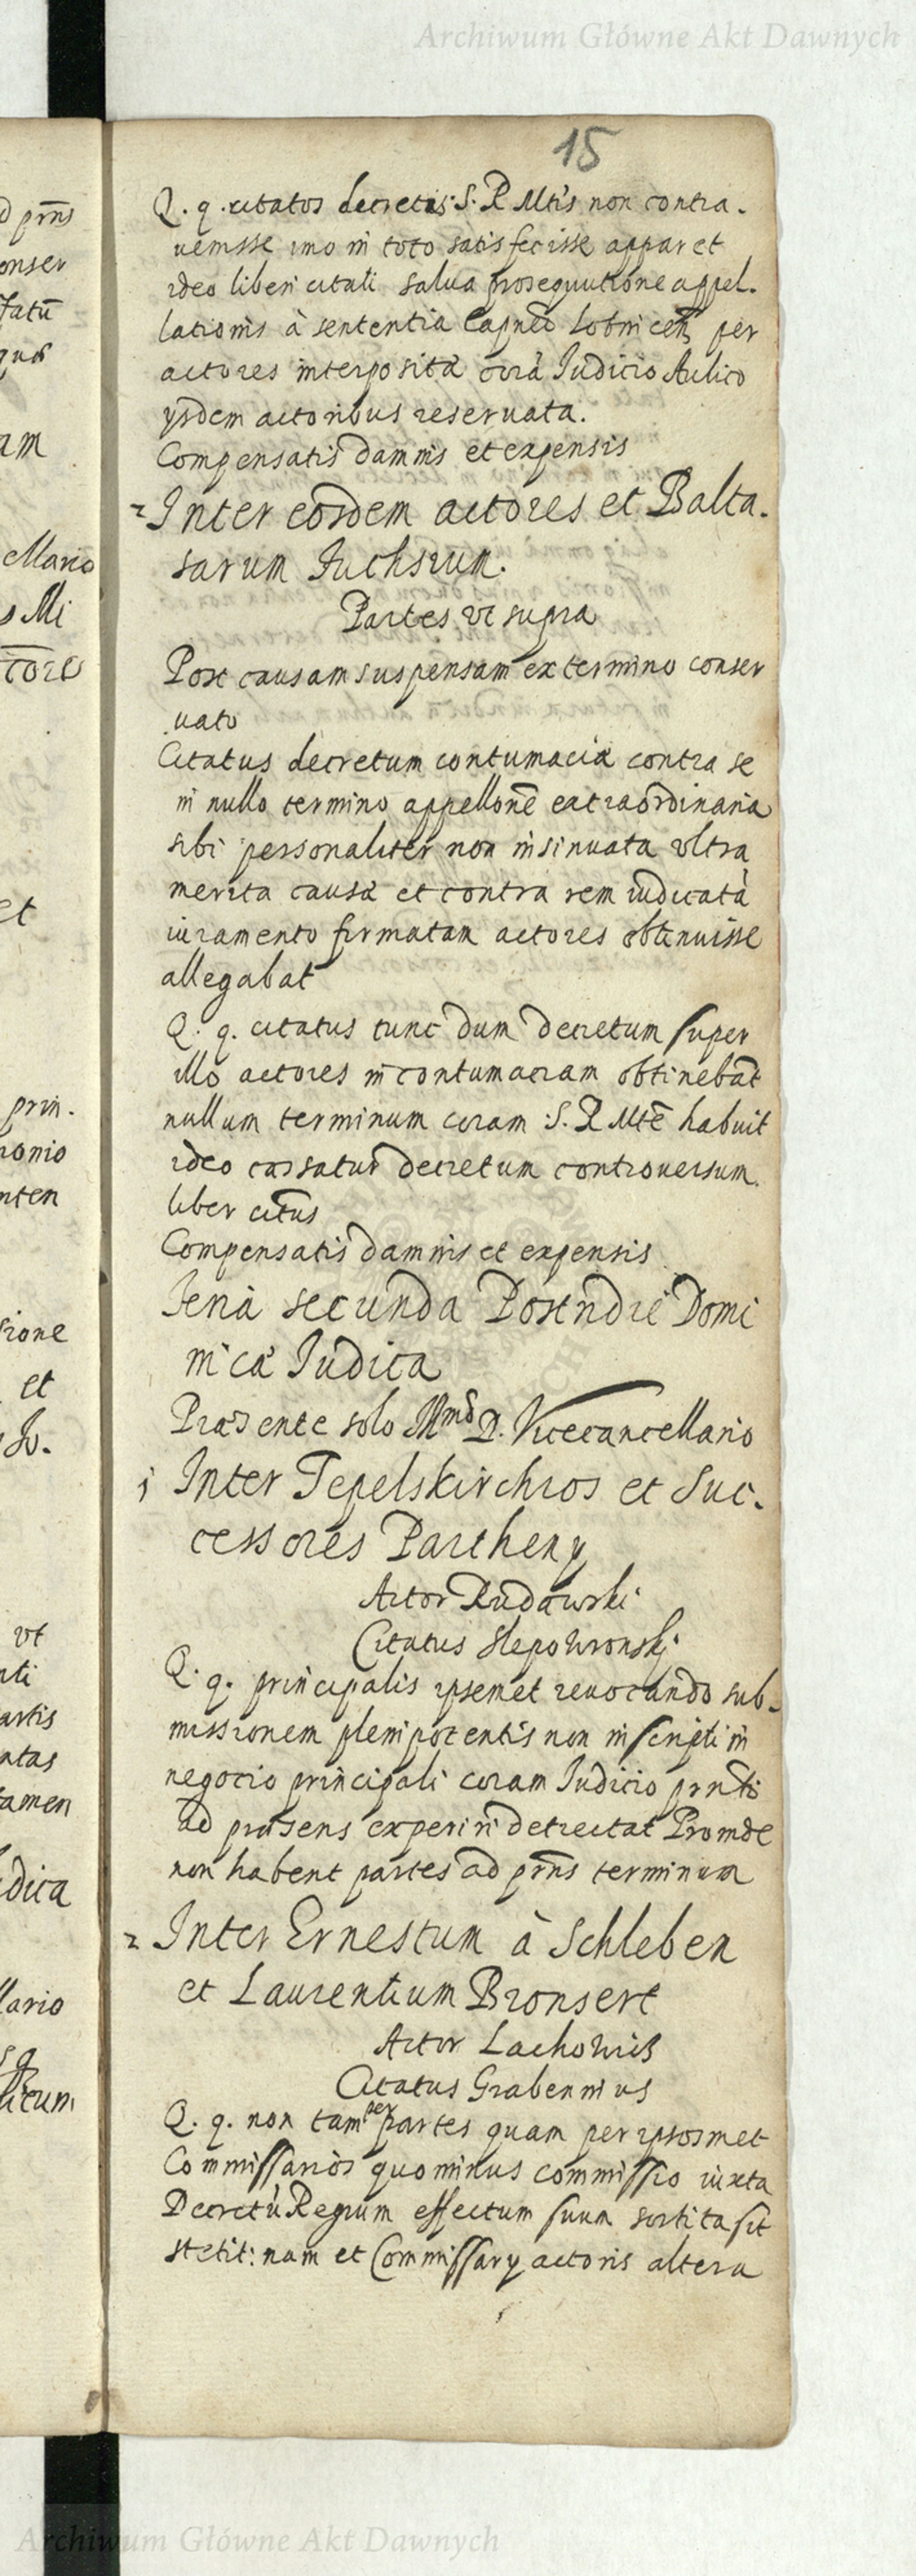 Archiwum Główne Akt Dawnych
15
Q. q. citatos decretis S. R. Mtis non contra.
uenisse imo in toto satisfecisse apparet
ideo liberi citati salua prosequutione appel.
lationis à sententia per
actores interposita corà Iudicio Aulico
ijsdem actoribus reseruata.
Compensatis damnis et expensis
2 Inter eosdem actores et Balta.
sarum Fuchsium.
Partes vt supra
Post causam suspensam ex termino conser
uato
Citatus decretum contumacia contra se
in nullo termino appellonē extraordinaria
sibi personaliter non insinuata vltra
merita causa et contra rem iudicatà
iuramento firmatam actores obtinuisse
allegabat
Q. q. citatus tunc dum decretum super
illo actores in contumaciam obtinebāt
nullum terminum coram S. R Mtē habuit
ideo cassatur decretum controuersum.
liber citus
Compensatis damnis et expensis
Feria secunda Post ndie Domi
nica Iudica
Praesente solo Illmo D. Vicecancellario
1 Inter Tepelskirchios et Suc.
cessores Partheny
Actor Rudawski
Citatus Slepowronskj
Q. q. principalis ipsemet reuocando sub.
missionem plenipotentis non inscripti in
negocio principali coram Iudicio prnti
ad praesens experiri detrectat Proinde
non habent partes ad prns terminum
2 Inter Ernestum à Schleben
et Laurentium Bronsert
Actor Lachowic
Citatus Grabennius
Q. q. non tam per partes quam per ipsosmet
Commissarios quominus commissio iuxta
Decretù Regium effectum suum sortita sit
stetit: nam et Commissary actoris altera
d prns
onser
am
Mario
s Mi
tores
et
prin.
ronio
nten
sione
et
vt
nti
artis
ntas
tamen
dica
llario
licum
Archiwum Główne Akt Dawnych